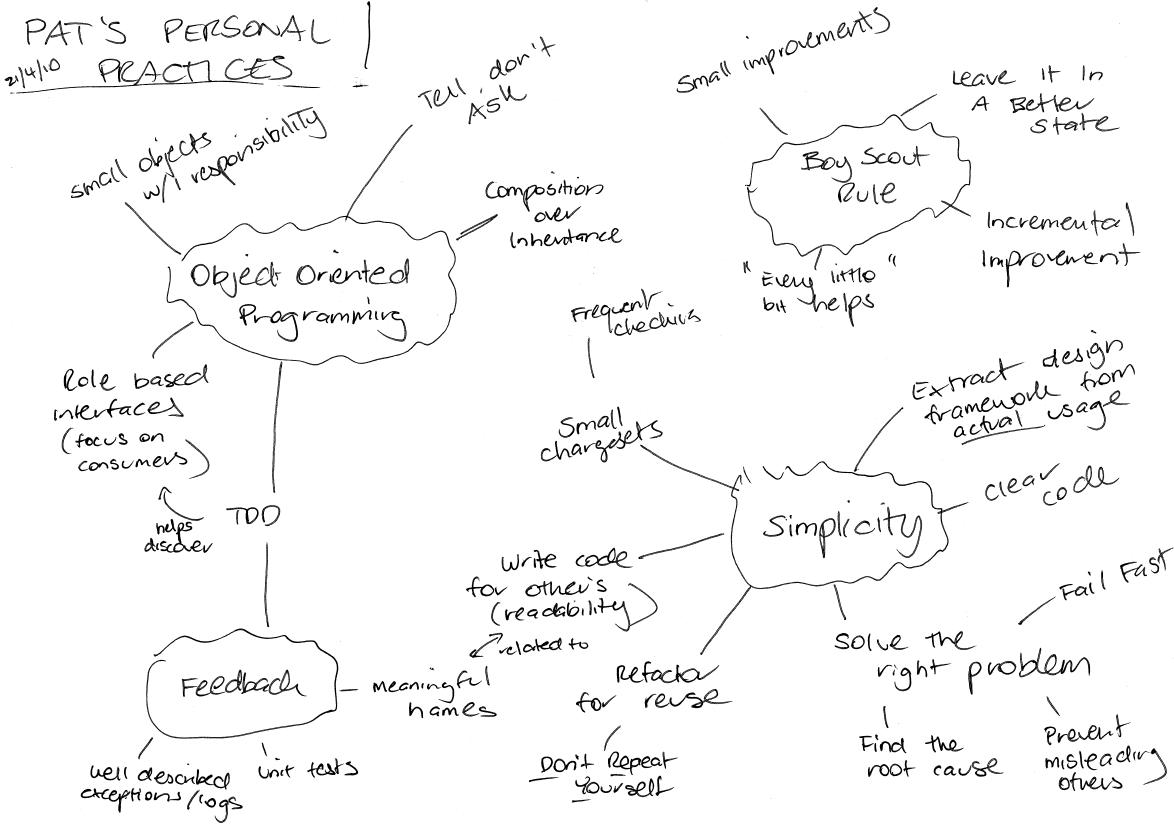 PAT'S PERSONAL
21/4/10 PRACTICES
small objects
w/1 responsibility
Tell don't
Ask
Composition
over
Inheritance
Object Oriented
Programming
Role based
interfaces
(focus on
consumers)
helps
discover
TDD
Feedback
Meaningful
names
well described
exceptions/logs
unit tests
Small improvements
Leave it in
A Better
State
Boy Scout
Rule
Incremental
Improvement
"Every little"
bit helps
Frequent
checkins
Small
changesets
Extract design
framework from
actual usage
clear
code
Simplicity
Write code
for other's
(readability)
related to
Refactor
for reuse
Don't Repeat
Yourself
Solve the
right problem
Fail Fast
Find the
root cause
Prevent
misleading
others